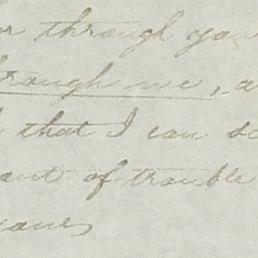 or through you
through me, a
that I can
ant of trouble